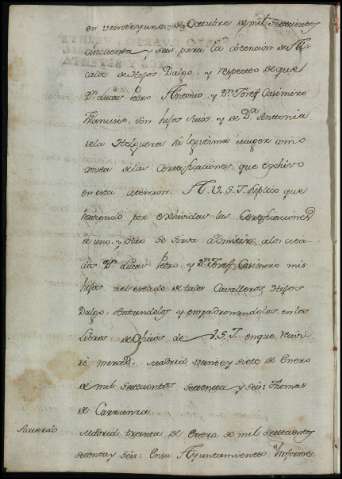 en veinte y uno de Octubre de mil setecientos y
cinquenta y seis para la obtencion de
calde de Hijos Dalgo, y respecto de que
Dn. Lucas Pedro Antonio, y Dn. Josef Casimiro
Francisco, son hijos mios, y de Da. Antonia
vela mi legitima muger como
consta de las Certificaciones que exhivo
en esta atencion A V.S.I. suplico que
haviendo por exhividas las Certificaciones
de uno, y otro se sirva admitir, a los cita-
dos Dn. Lucas Pedro, y Dn. Josef Casimiro mis
hijos al estado de tales Cavalleros Hijos
Dalgo, sentandolos y empadronandolos en los
Libros de Oficios de V.S.I. en que recivi-
re merced. Madrid veinte y siete de Enero
de mil setecientos setenta y seis: Thomas
de Carranza
Acuerdo Madrid treinta de Enero de mil setecientos y
setenta y seis: En su Ayuntamiento: Informe